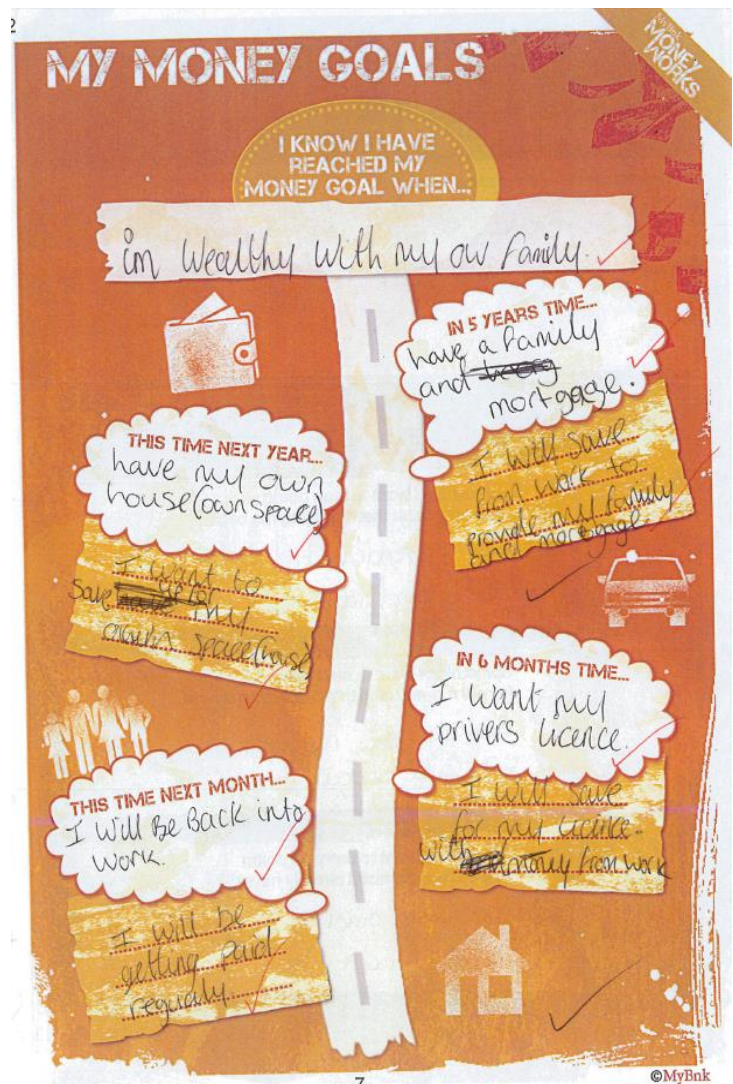 2
MyBnk
MONEY
WORKS
MY MONEY GOALS
I KNOW I HAVE
REACHED MY
MONEY GOAL WHEN...
im Wealthy With my ow family.
IN 5 YEARS TIME...
have a family
and
mortgage.
I will save
from work to
provide my family
and mortgage
THIS TIME NEXT YEAR...
have my own
house (own space)
I want to
save for my
space (house)
IN 6 MONTHS TIME...
I want my
privers licence.
I will save
for my licence.
with money from work
THIS TIME NEXT MONTH...
I will Be Back into
work.
I will be
getting paid
regually
7
©MyBnk